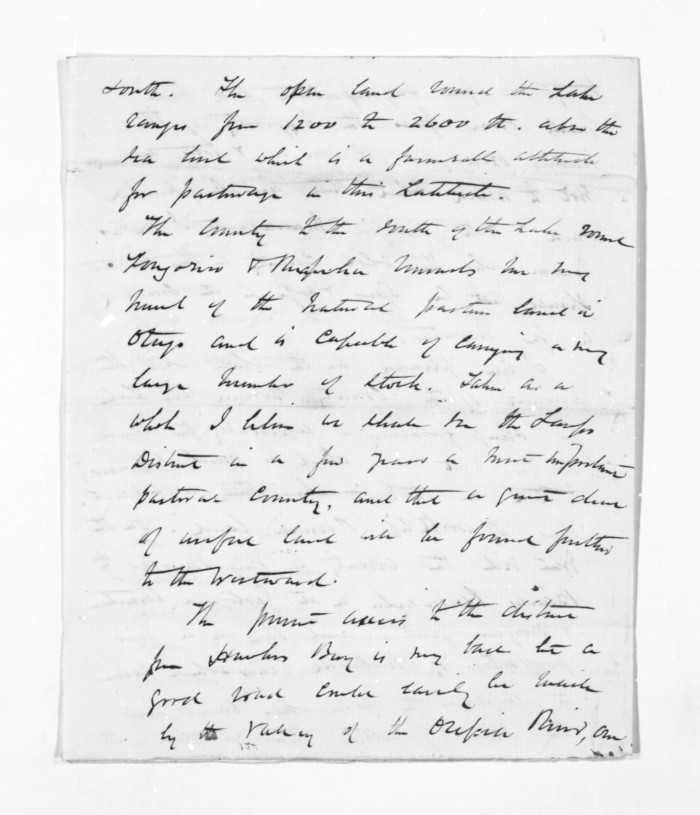 South. The open land round the Lake
ranges from 1200 to 2600 ft. above the
sea level which is a favorable altitude
for pasturage in this Latitude.
The Country to the south of the Lake round
Tongariro & Ruapehu reminds me very
much of the natural pasture land in
Otago and is capable of carrying a very
large number of stock. Taken as a
whole I believe we shall see the Taupo
District in a few years a most important
pastoral country, and that a great deal
of useful land will be found further
to the Westward.
The present access to the district
from Hawkes Bay is very bad but a
good road could easily be made
by the valley of the River, one